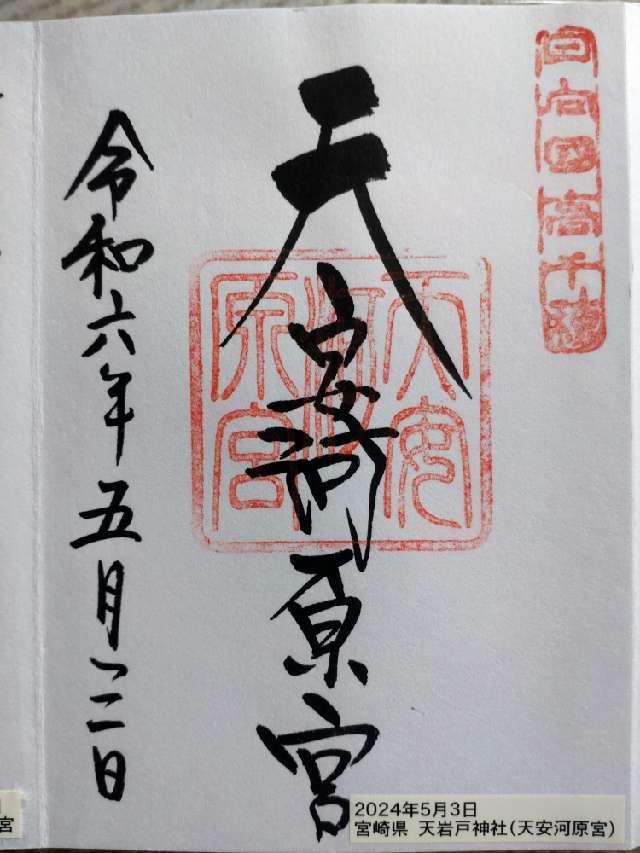 日向国高千穂
天安河原宮
天安河原宮
令和六年五月三日
2024年5月3日
宮崎県 天岩戸神社(天安河原宮)
宮